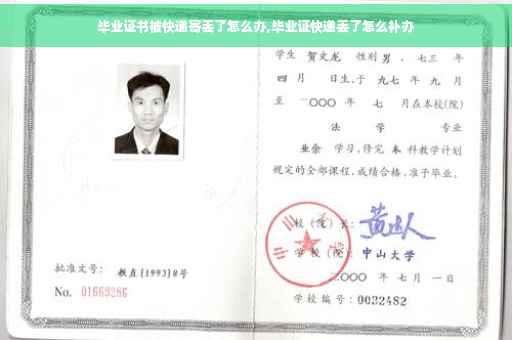 毕业证书被快递寄丢了怎么办,毕业证快递丢了怎么补办
学生 贺文龙 性别 男 、七三 年
四 月 日生,于 九七 年 九 月
至 二〇〇〇 年 七 月在本校(院)
法 学 专业
业余 学习,修完 本 科教学计划
规定的全部课程,成绩合格,准予毕业。
校(院)长:
学校(院): 中山大学
批准文号: 教直[1993]8号
二〇〇〇 年 七 月 一 日
No. 01669286
学校编号: 0032482